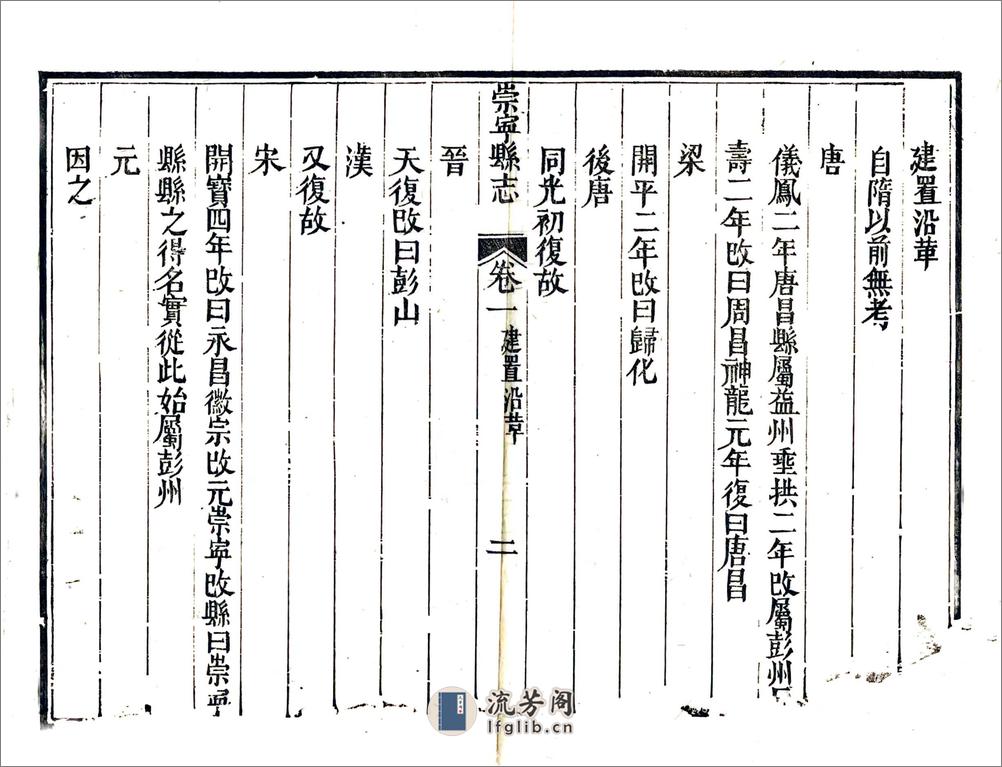 建置沿革
自隋以前無考
唐
儀鳳二年唐昌縣屬益州垂拱二年改屬彭州
壽二年改曰周昌神龍元年復曰唐昌
梁
開平二年改曰歸化
後唐
同光初復故
崇寧縣志
卷一
建置沿革
二
晉
天復改曰彭山
漢
又復故
宋
開寶四年改曰永昌徽宗改元崇寧改縣曰崇寧
縣縣之得名實從此始屬彭州
元
因之
流芳阁
lfglib.cn